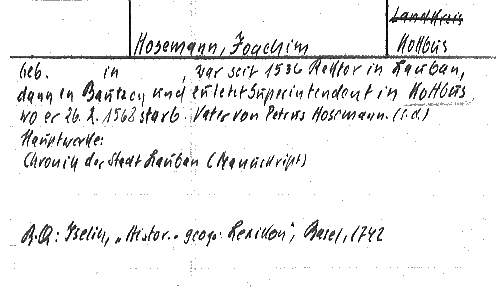 Landkreis
Hosemann, Joachim Kottbus
Geb. in , war seit 1536 Rektor in Lauban,
dann in Bautzen und zuletzt Superintendent in Kottbus
wo er 26. 2. 1568 starb. Vater von Petrus Hosemann. (s.d.)
Hauptwerke:
Chronik der Stadt Lauban (Manuskript)
B.Q.: Iselin, „Histor.- geogr. Lexikon", Basel, 1742